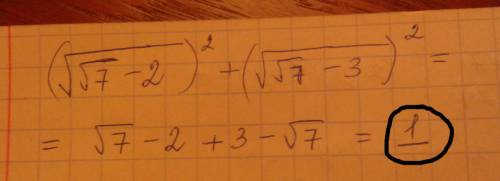 (√(√7 − 2))² + (√(√7 − 3))² =
= √7 − 2 + 3 − √7 = 1